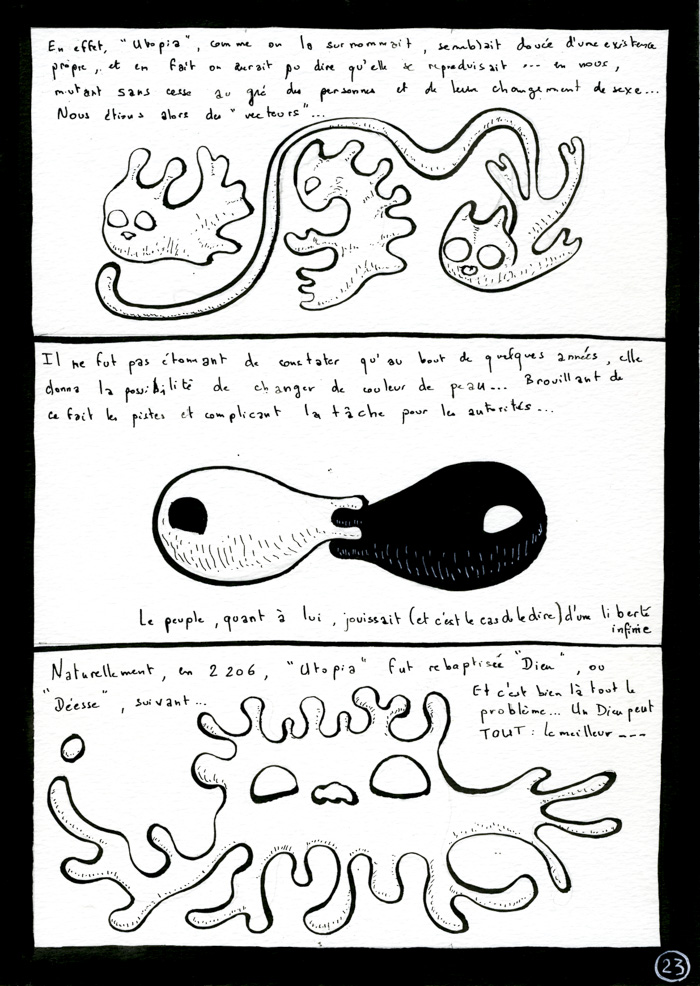 En effet, "Utopia", comme on la surnommait, semblait douée d'une existence
propre, et en fait on aurait pu dire qu'elle se reproduisait... en nous,
mutant sans cesse au gré des personnes et de leur changement de sexe...
Nous étions alors des "vecteurs"...
Il ne fut pas étonnant de constater qu'au bout de quelques années, elle
donna la possibilité de changer de couleur de peau... Brouillant de
ce fait les pistes et compliquant la tâche pour les autorités...
Le peuple, quant à lui, jouissait (et c'est le cas de le dire) d'une liberté
infinie
Naturellement, en 2206, "Utopia" fut rebaptisée "Dieu", ou
"Déesse", suivant...
Et c'est bien là tout le
problème... Un Dieu peut
TOUT : le meilleur ---
23